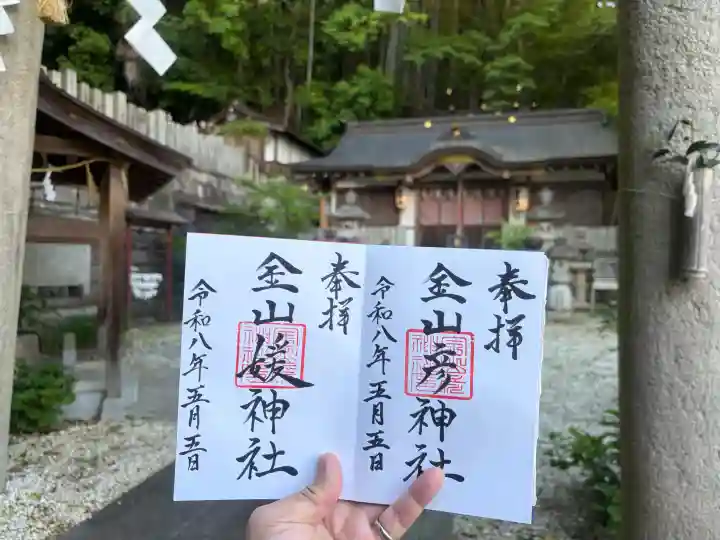 奉拝
金山彦神社
令和八年五月五日
奉拝
金山媛神社
令和八年五月五日